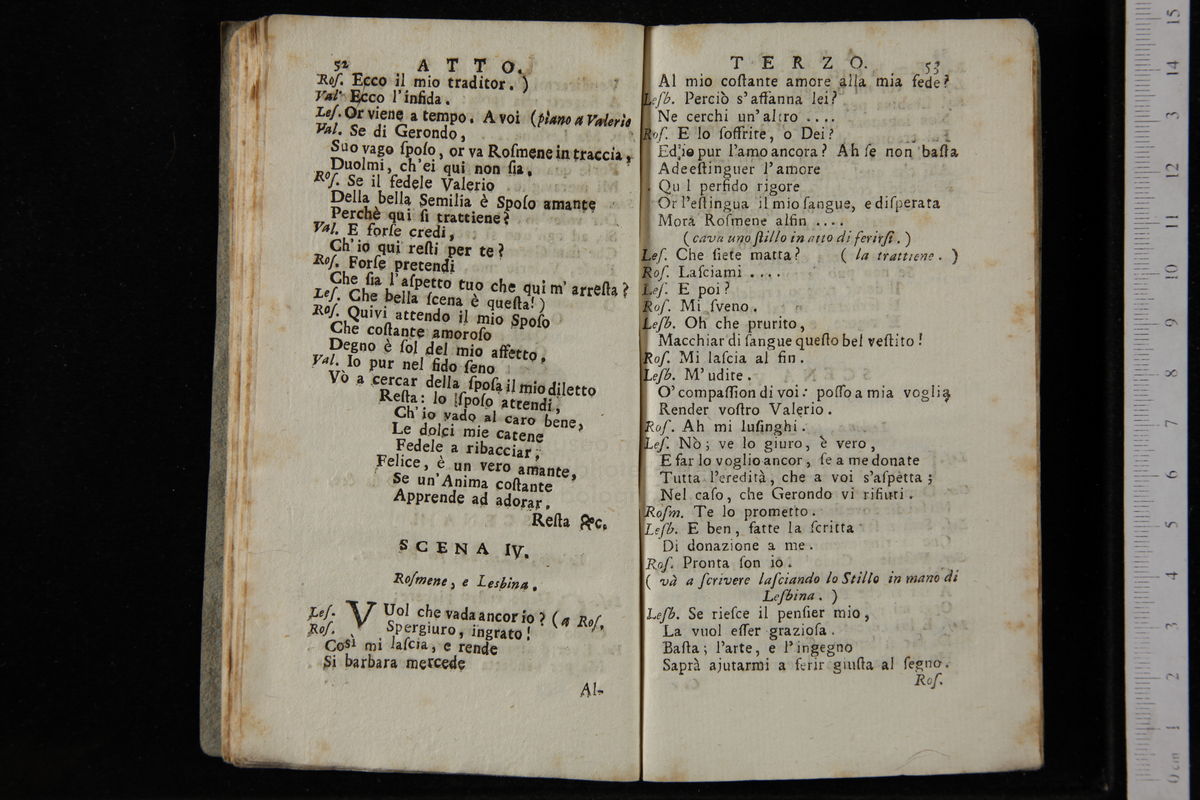 52 ATTO.
Roſ. Ecco il mio traditor. )
Val. Ecco l'infida.
Leſ. Or viene a tempo. A voi (piano a Valerio
Val. Se di Gerondo,
Suo vago ſpoſo, or va Roſmene in traccia,
Duolmi, ch'ei qui non ſia.
Roſ. Se il fedele Valerio
Della bella Semilia è Spoſo amante
Perchè qui ſi trattiene?
Val. E forſe credi,
Ch'io qui reſti per te?
Roſ. Forſe pretendi
Che ſia l'aſpetto tuo che qui m' arreſta?
Leſ. Che bella ſcena è queſta!)
Roſ. Quivi attendo il mio Spoſo
Che coſtante amoroſo
Degno è ſol del mio affetto.
Val. Io pur nel fido ſeno
Vò a cercar della ſpoſa il mio diletto
Reſta: lo ſpoſo attendi,
Ch'io vado al caro bene,
Le dolci mie catene
Fedele a ribacciar;
Felice, è un vero amante,
Se un'Anima coſtante
Apprende ad adorar.
Reſta &c.
SCENA IV.
Roſmene, e Lesbina.
Leſ. VUol che vada ancor io? (a Roſ.
Roſ. Spergiuro, ingrato!
Così mi laſcia, e rende
Si barbara mercede
Al-
TERZO. 53
Al mio coſtante amore alla mia fede?
Leſb. Perciò s'affanna lei?
Ne cerchi un'altro ....
Roſ. E lo ſoffrite, o Dei?
Ed io pur l'amo ancora? Ah ſe non baſta
Adeeſtinguer l'amore
Qu l perfido rigore
Or l'eſtingua il mio ſangue, e diſperata
Mora Roſmene alfin ....
(cava uno ſtillo in atto di ferirſi.)
Leſ. Che ſiete matta? ( la trattiene. )
Roſ. Laſciami ....
Leſ. E poi?
Roſ. Mi ſveno.
Leſb. Oh che prurito,
Macchiar di ſangue queſto bel veſtito!
Roſ. Mi laſcia al fin.
Leſb. M'udite.
O' compaſſion di voi: poſſo a mia voglia
Render voſtro Valerio.
Roſ. Ah mi luſinghi.
Leſ. Nò; ve lo giuro, è vero,
E far lo voglio ancor, ſe a me donate
Tutta l'eredità, che a voi s'aſpetta;
Nel caſo, che Gerondo vi rifiuti.
Roſm. Te lo prometto.
Leſb. E ben, fatte la ſcritta
Di donazione a me.
Roſ. Pronta ſon io.
( và a ſcrivere laſciando lo Stillo in mano di
Leſbina. )
Leſb. Se rieſce il penſier mio,
La vuol eſſer grazioſa.
Baſta; l'arte, e l'ingegno
Saprà ajutarmi a ferir giuſta al ſegno.
Roſ.
0 cm 1 2 3 4 5 6 7 8 9 10 11 12 13 14 15